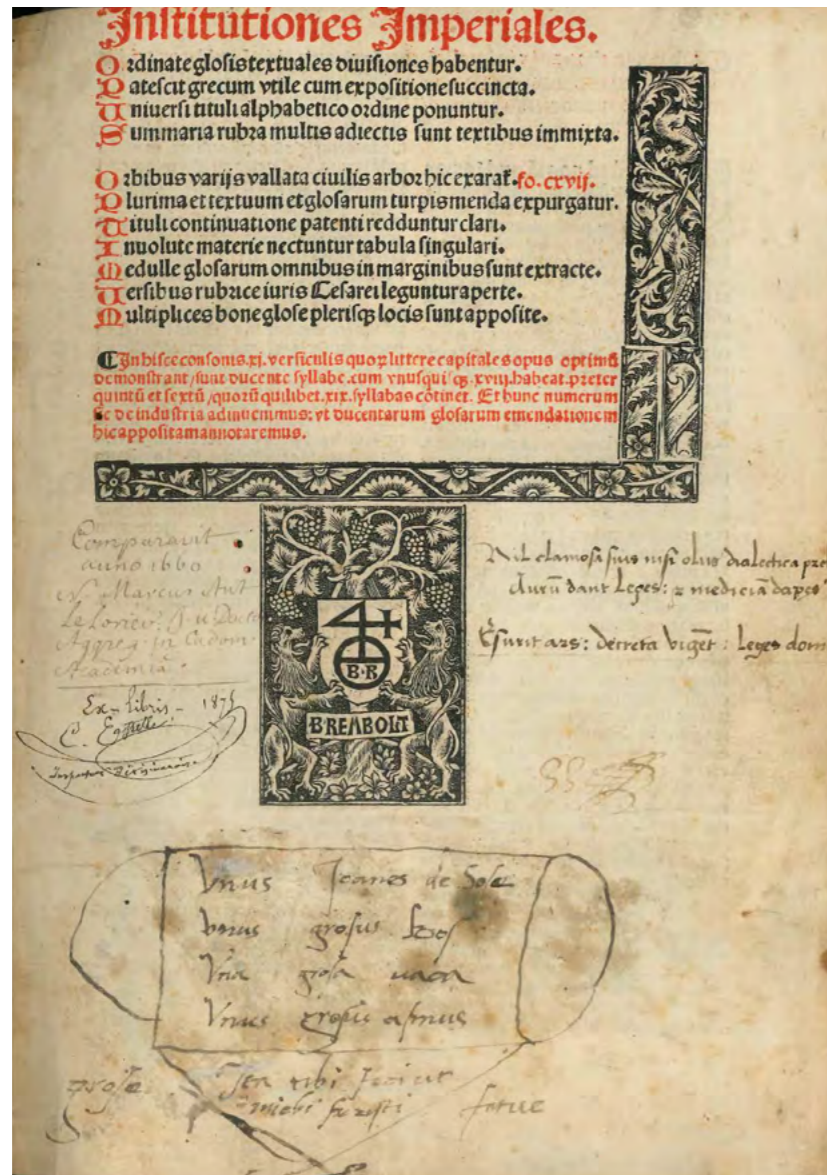 Institutiones Imperiales.
Ordinate glosis textuales diuisiones habentur.
Patescit grecum vtile cum expositione succincta.
Uniuersi tituli alphabetico ordine ponuntur.
Summaria rubra multis adiectis sunt textibus immixta.
Orbibus varijs vallata ciuilis arbor hic exarat̃. fo. cxvij.
Plurima et textuum et glosarum turpis menda expurgatur.
Tituli continuatione patenti redduntur clari.
Inuolute materie nectuntur tabula singulari.
Medulle glosarum omnibus in marginibus sunt extracte.
Uersibus rubrice iuris Cesarei leguntur aperte.
Multiplices bone glose plerisqꝫ locis sunt apposite.
In hisce consonis .xj. versiculis quoꝝ littere capitales opus optimũ
demonstrant / sunt ducente syllabe. cum vnusquisqꝫ .xviij. habeat. preter
quintũ et sextũ / quorũ quilibet .xix. syllabas cõtinet. Et hunc numerum
sic de industria adinuenimus: vt ducentarum glosarum emendationem
hic appositam annotaremus.
B·R
BREMBOLT
Comparavit
anno 1660
Marcus Ant
Aggreg. in Cadom
Academiâ.
Ex-libris - 1875
C.
Nil clamosa suis nisi olus dialectica pre
Aurũ dant Leges: medicinã dapes
Esurit ars: decreta vigẽt: Leges dom
Vnus Joanes de Sole
Vnus grosus
Vna grosa uaca
Vnus grosus asinus
grosse
tibi
mihi fatue